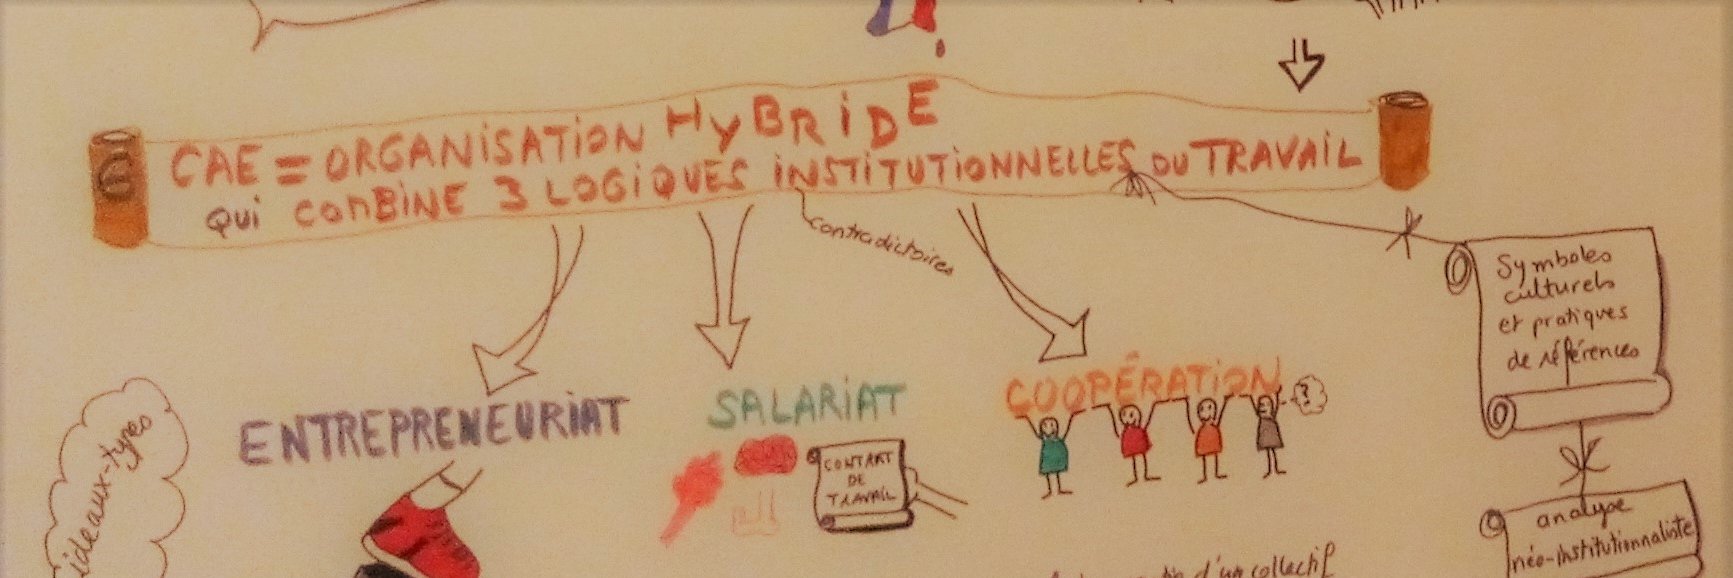 CAE = ORGANISATION HYBRIDE
qui COMBINE 3 LOGIQUES INSTITUTIONNELLES DU TRAVAIL
contradictoires
Symboles
culturels
et pratiques
de références
ENTREPRENEURIAT
SALARIAT
COOPÉRATION
?
idéaux-types
CONTRAT
DE
TRAVAIL
analyse
néo-institutionnaliste
d'un collectif